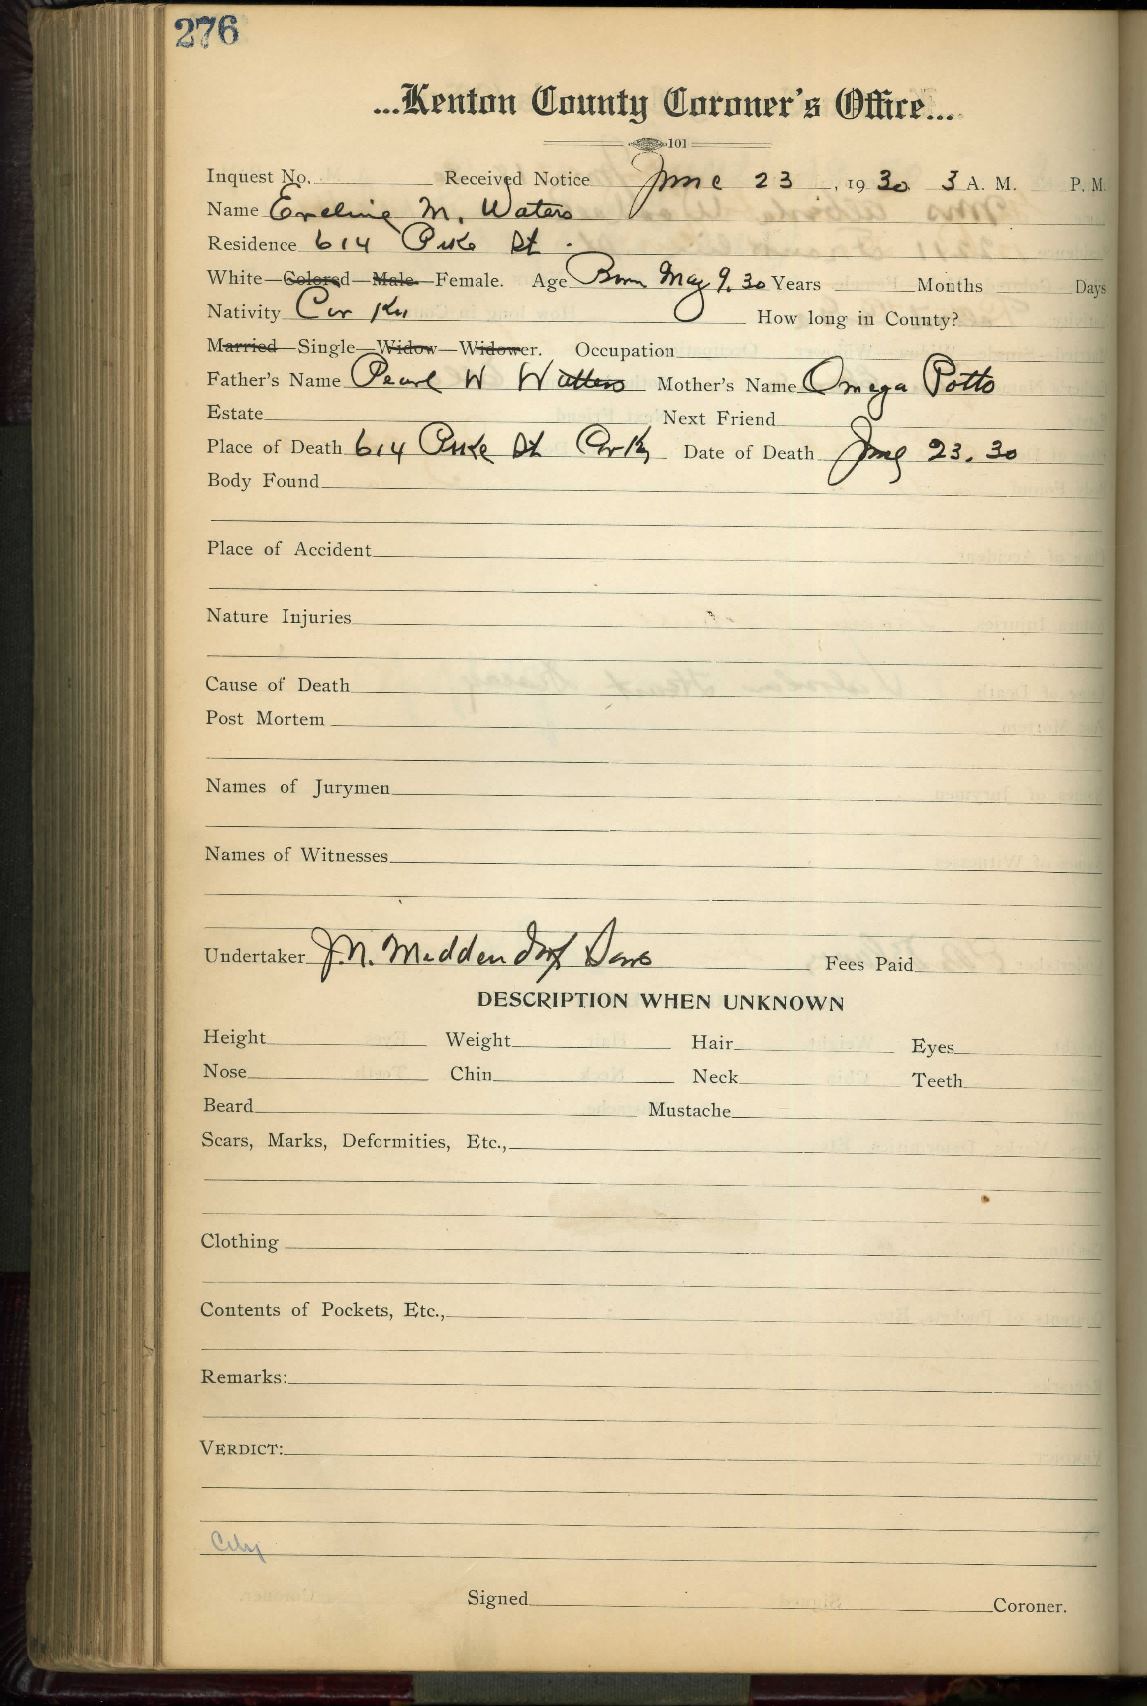 276
...Kenton County Coroner's Office...
101
Inquest No. Received Notice June 23, 1930. 3 A. M. P. M.
Name Eveline M. Waters
Residence 614 Pike St.
White—Colored—Male—Female. Age Born May 9. 30 Years Months Days
Nativity Cov Ky How long in County?
Married—Single—Widow—Widower. Occupation
Father's Name Pearl W Watters Mother's Name Omega Potts
Estate Next Friend
Place of Death 614 Pike St Cov Ky Date of Death June 23. 30
Body Found
Place of Accident
Nature Injuries
Cause of Death
Post Mortem
Names of Jurymen
Names of Witnesses
Undertaker J. N. Middendorf Sons Fees Paid
DESCRIPTION WHEN UNKNOWN
Height Weight Hair Eyes
Nose Chin Neck Teeth
Beard Mustache
Scars, Marks, Deformities, Etc.,
Clothing
Contents of Pockets, Etc.,
Remarks:
VERDICT:
City
Signed Coroner.